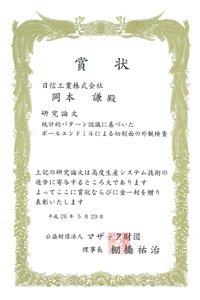 賞状
日信工業株式会社
岡本 謙 殿
研究論文
統計的パターン認識に基づいた
ボールエンドミルによる切削面の外観検査
上記の研究論文は高度生産システム技術の
進歩に寄与するところ大であります
よってここに賞状ならびに金一封を贈り
表彰いたします
平成26年5月29日
公益財団法人 マザック財団
理事長 棚橋祐治